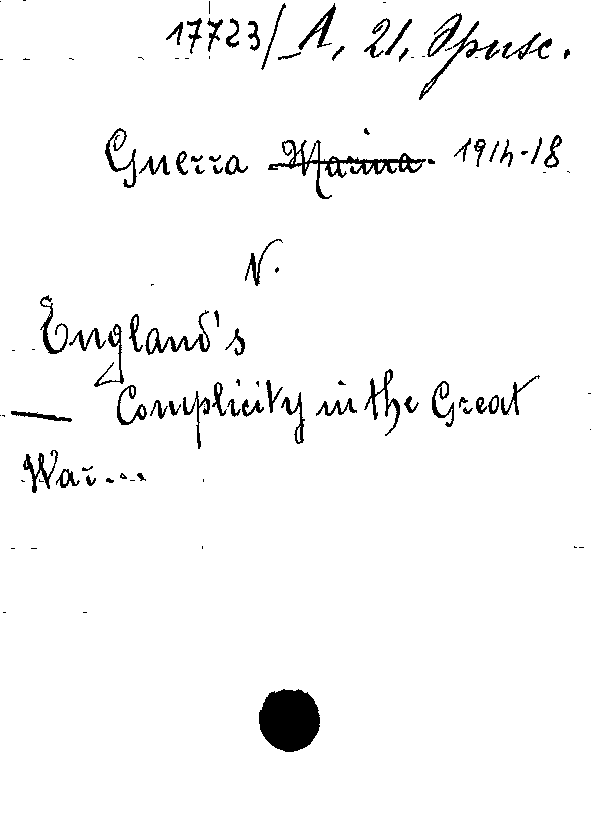 17723/A, 21, Opusc.
Guerra Marina. 1914-18
V.
England's
— Complicity in the Great
War...